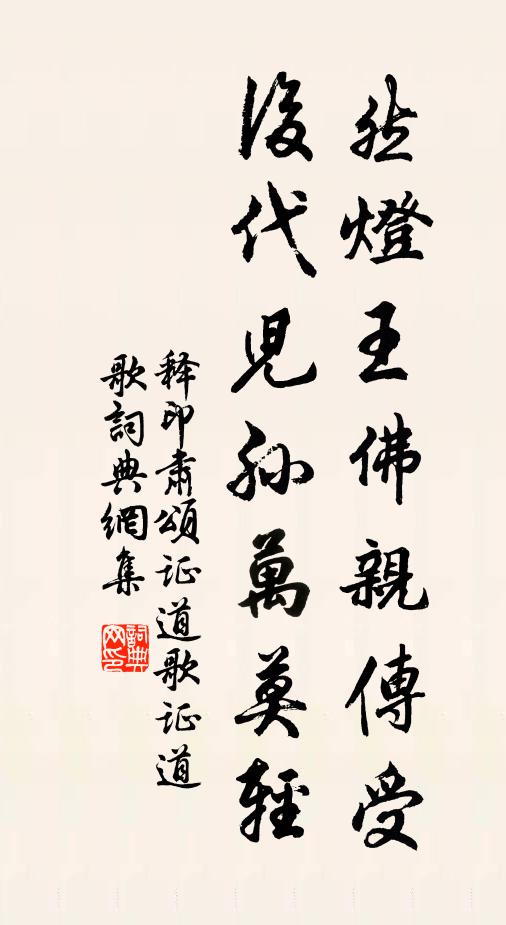 然燈王佛親傳受
後代兒孫萬莫輕
释印肅頌证道歌证道
歌詞典網集
詞典
网印